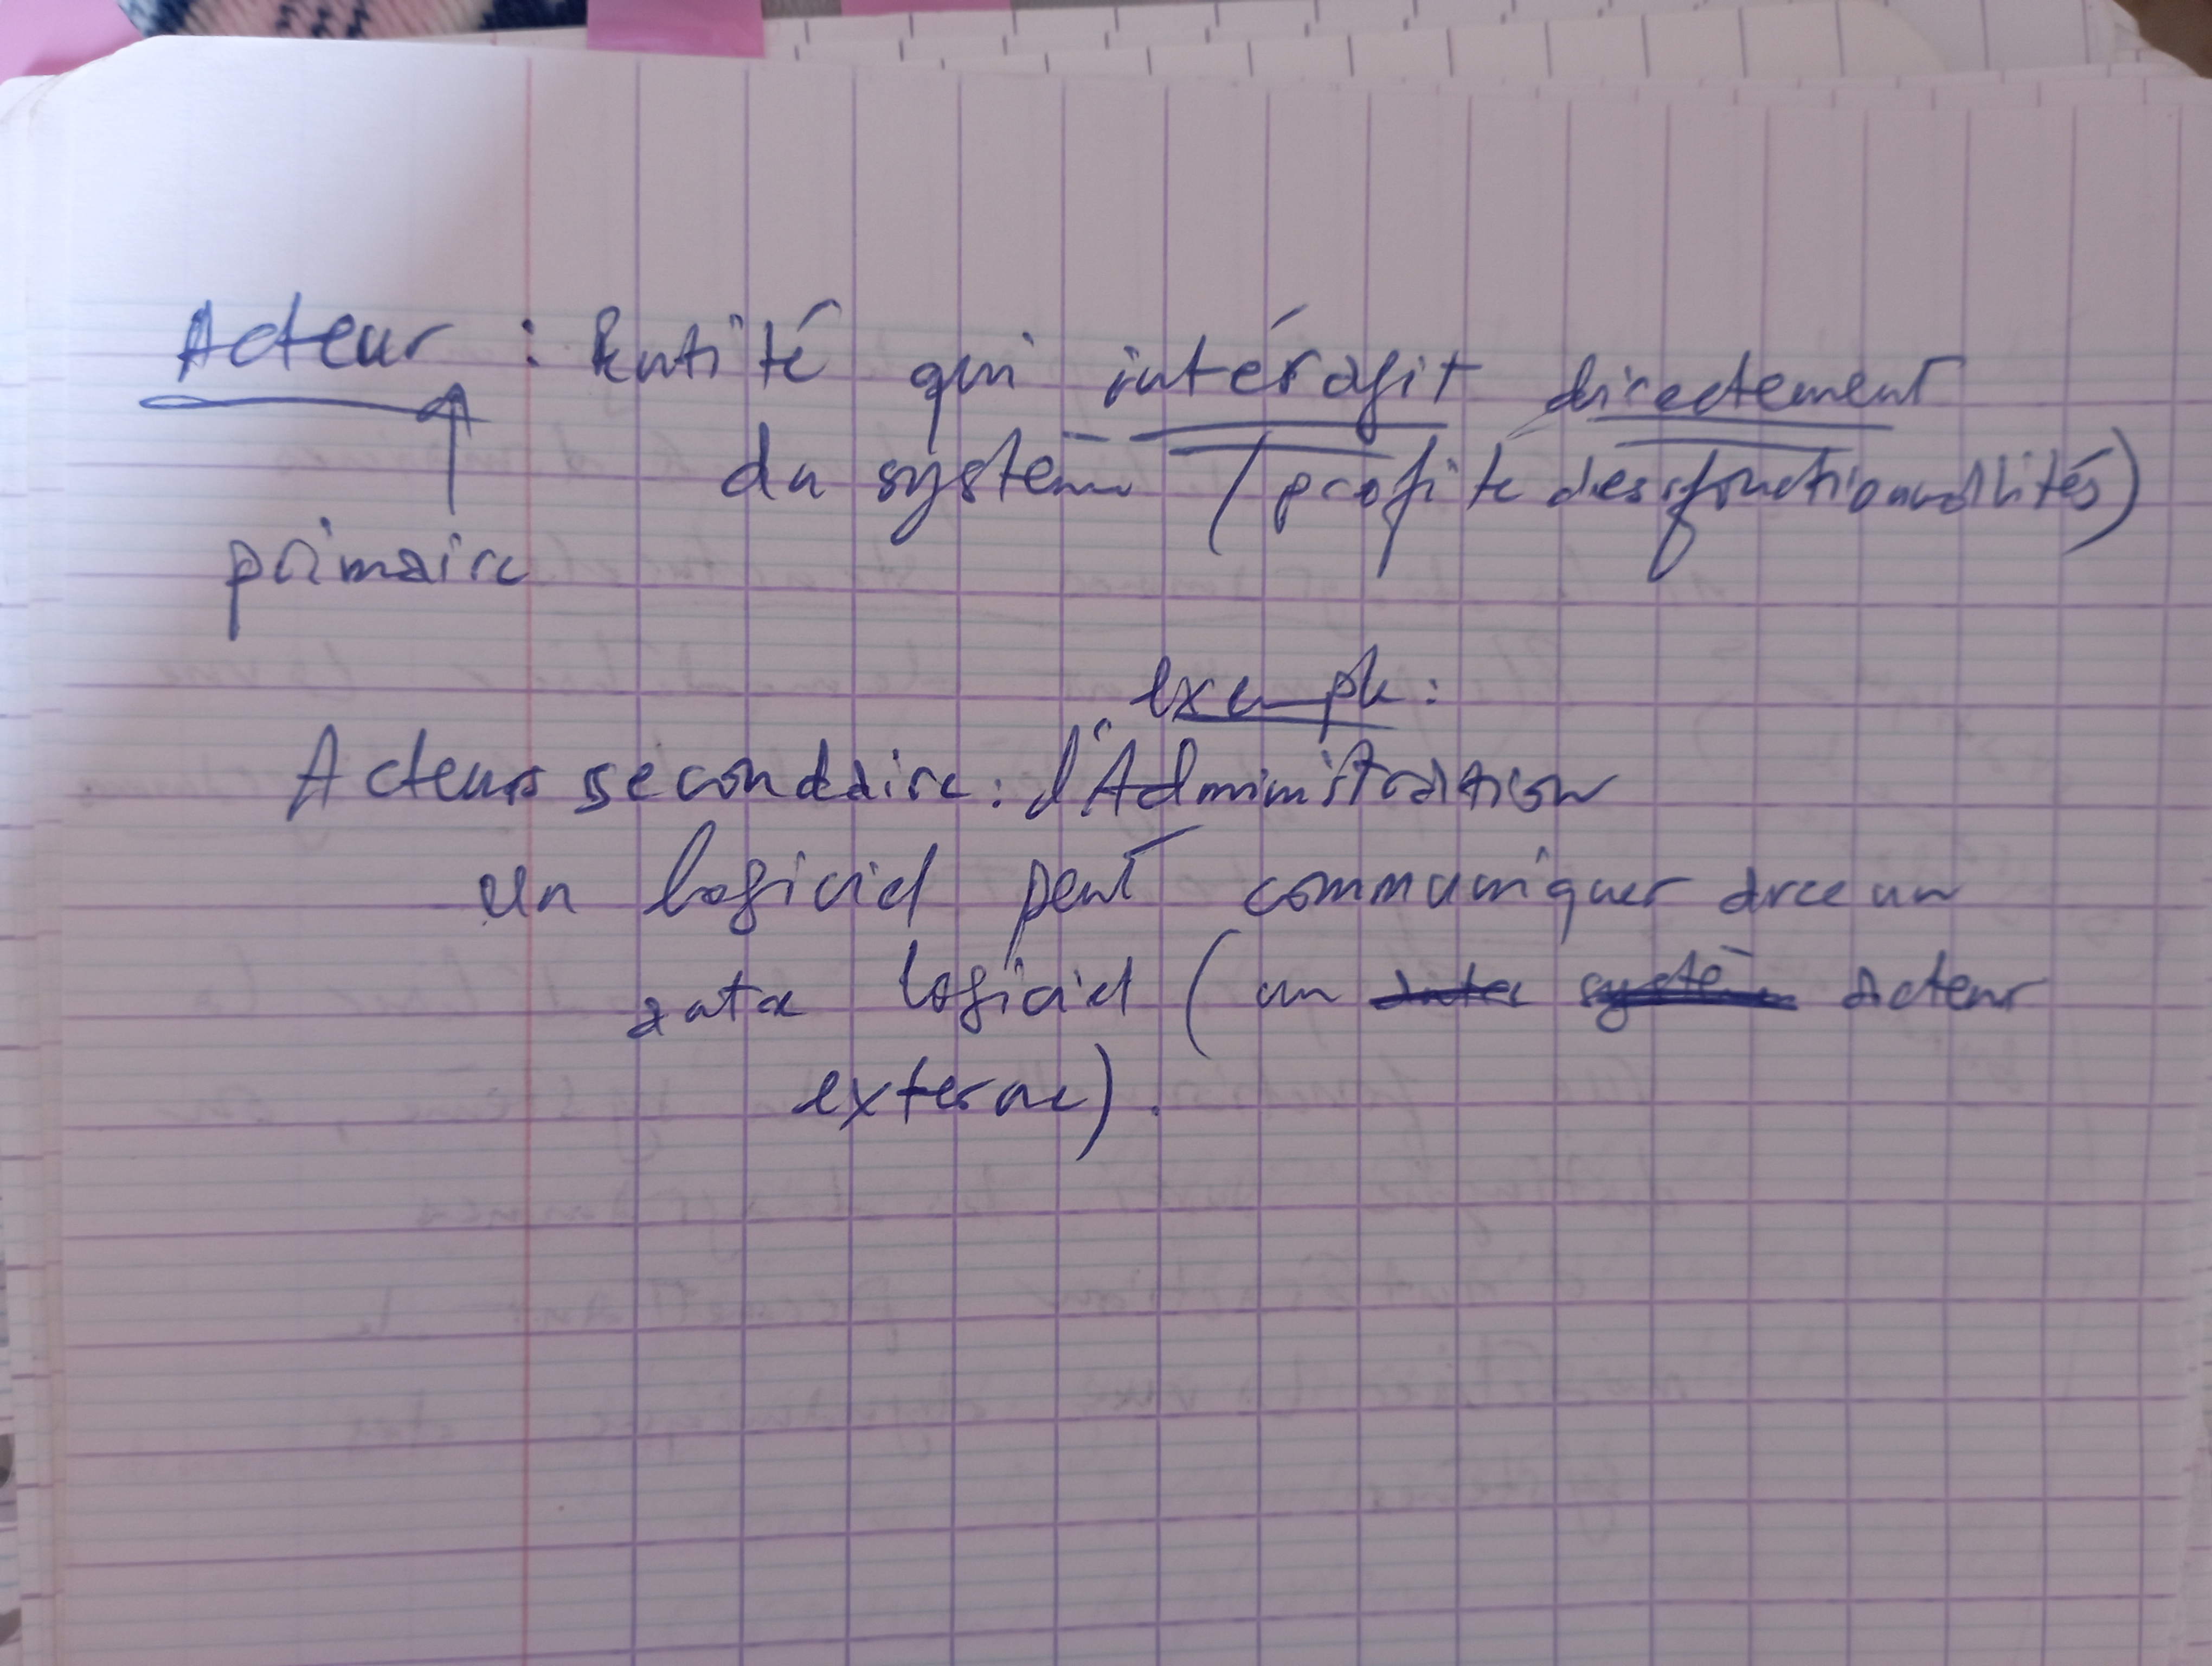 Acteur : Entité qui intéragit directement
primaire du système (profite des fonctionnalités)
exemple :
Acteurs secondaire : l'Administration
Un logiciel peut communiquer avec un
autre logiciel (un acteur
externe).